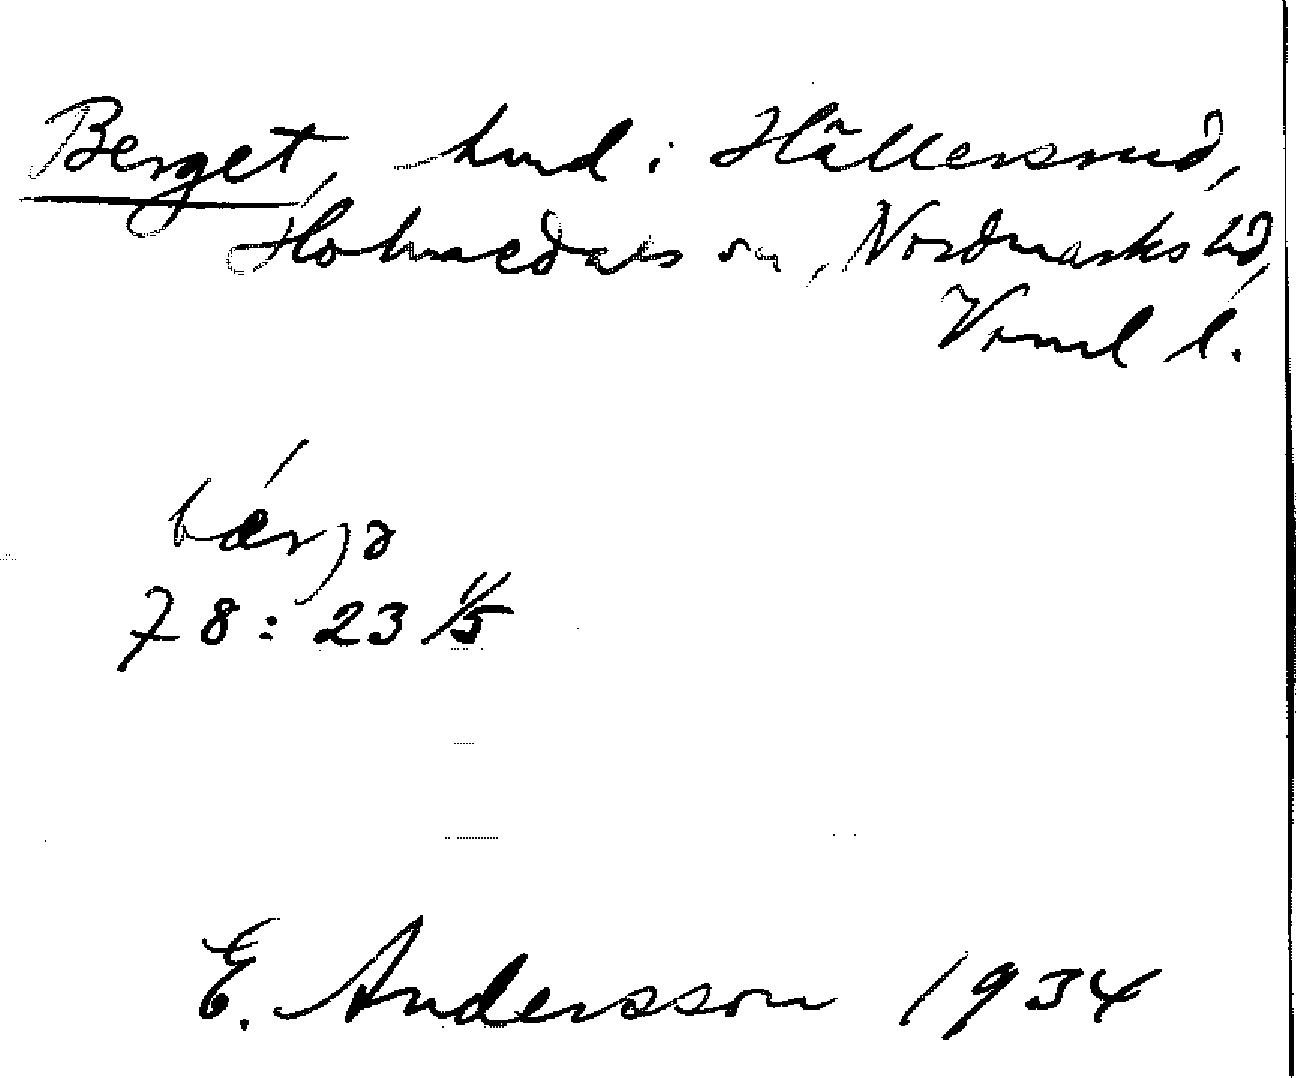 Berget, hmd i Hällersrud,
Holmedals sn, Nordmarks hd,
Vrml l.
bǽrjə
78:23 1/5
E. Andersson 1934